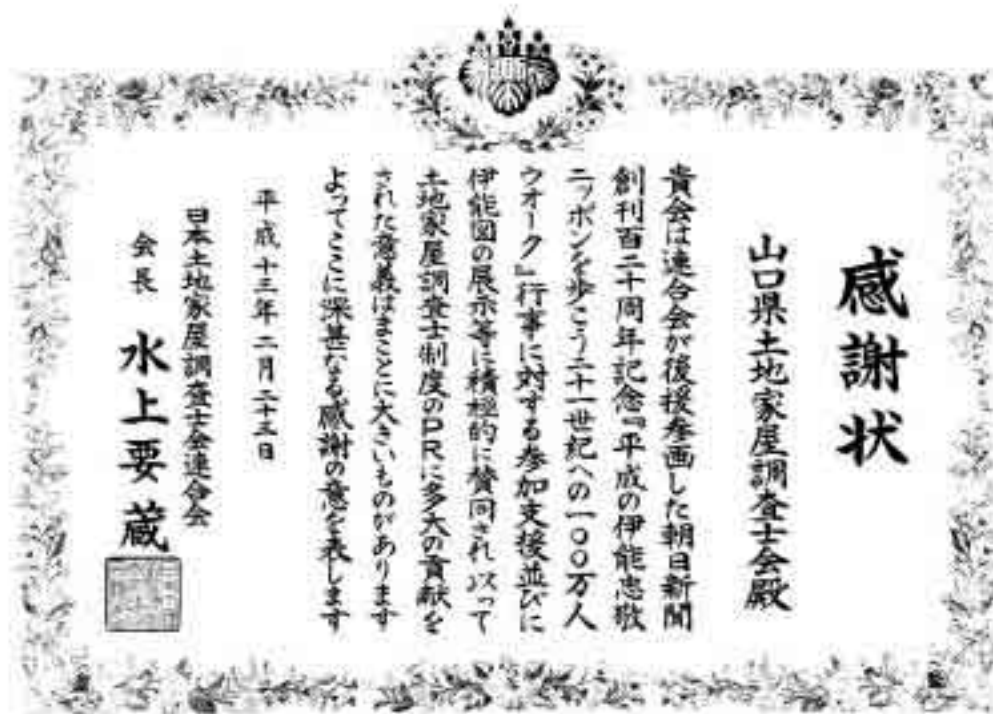 感謝状
山口県土地家屋調査士会殿
貴会は連合会が後援参画した朝日新聞
創刊百二十周年記念『平成の伊能忠敬
ニッポンを歩こう二十一世紀への一〇〇万人
ウオーク』行事に対する参加支援並びに
伊能図の展示等に積極的に賛同され以って
土地家屋調査士制度のPRに多大の貢献を
された意義はまことに大きいものがあります
よってここに深甚なる感謝の意を表します
平成十三年二月二十三日
日本土地家屋調査士会連合会
会長 水上要蔵